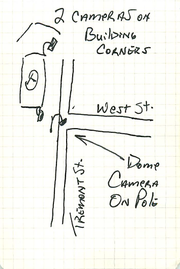 2 CAMERAS ON
BUILDING
CORNERS
WEST ST.
TREMONT ST.
DOME
CAMERA
ON POLE